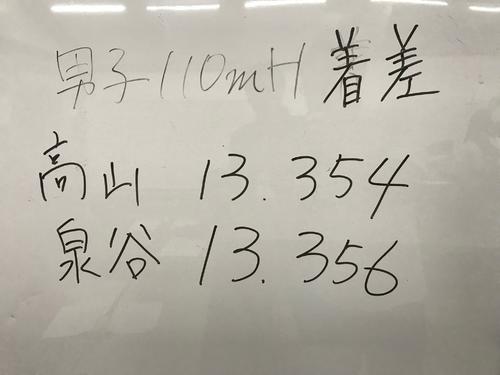 男子110mH 着差
高山 13.354
泉谷 13.356